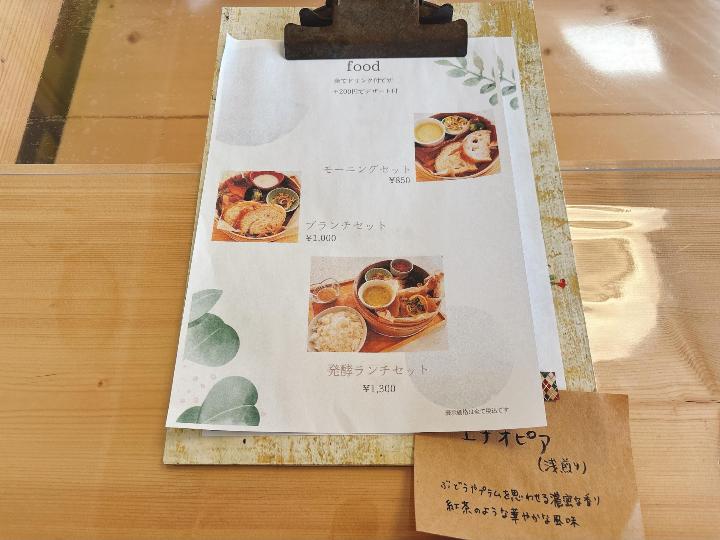 food
全てドリンク付です
+200円でデザート付
モーニングセット
¥850
ブランチセット
¥1,000
発酵ランチセット
¥1,300
表示価格は全て税込です
エチオピア
(浅煎り)
ぶどうやプラムを思わせる濃密な香り
紅茶のような華やかな風味